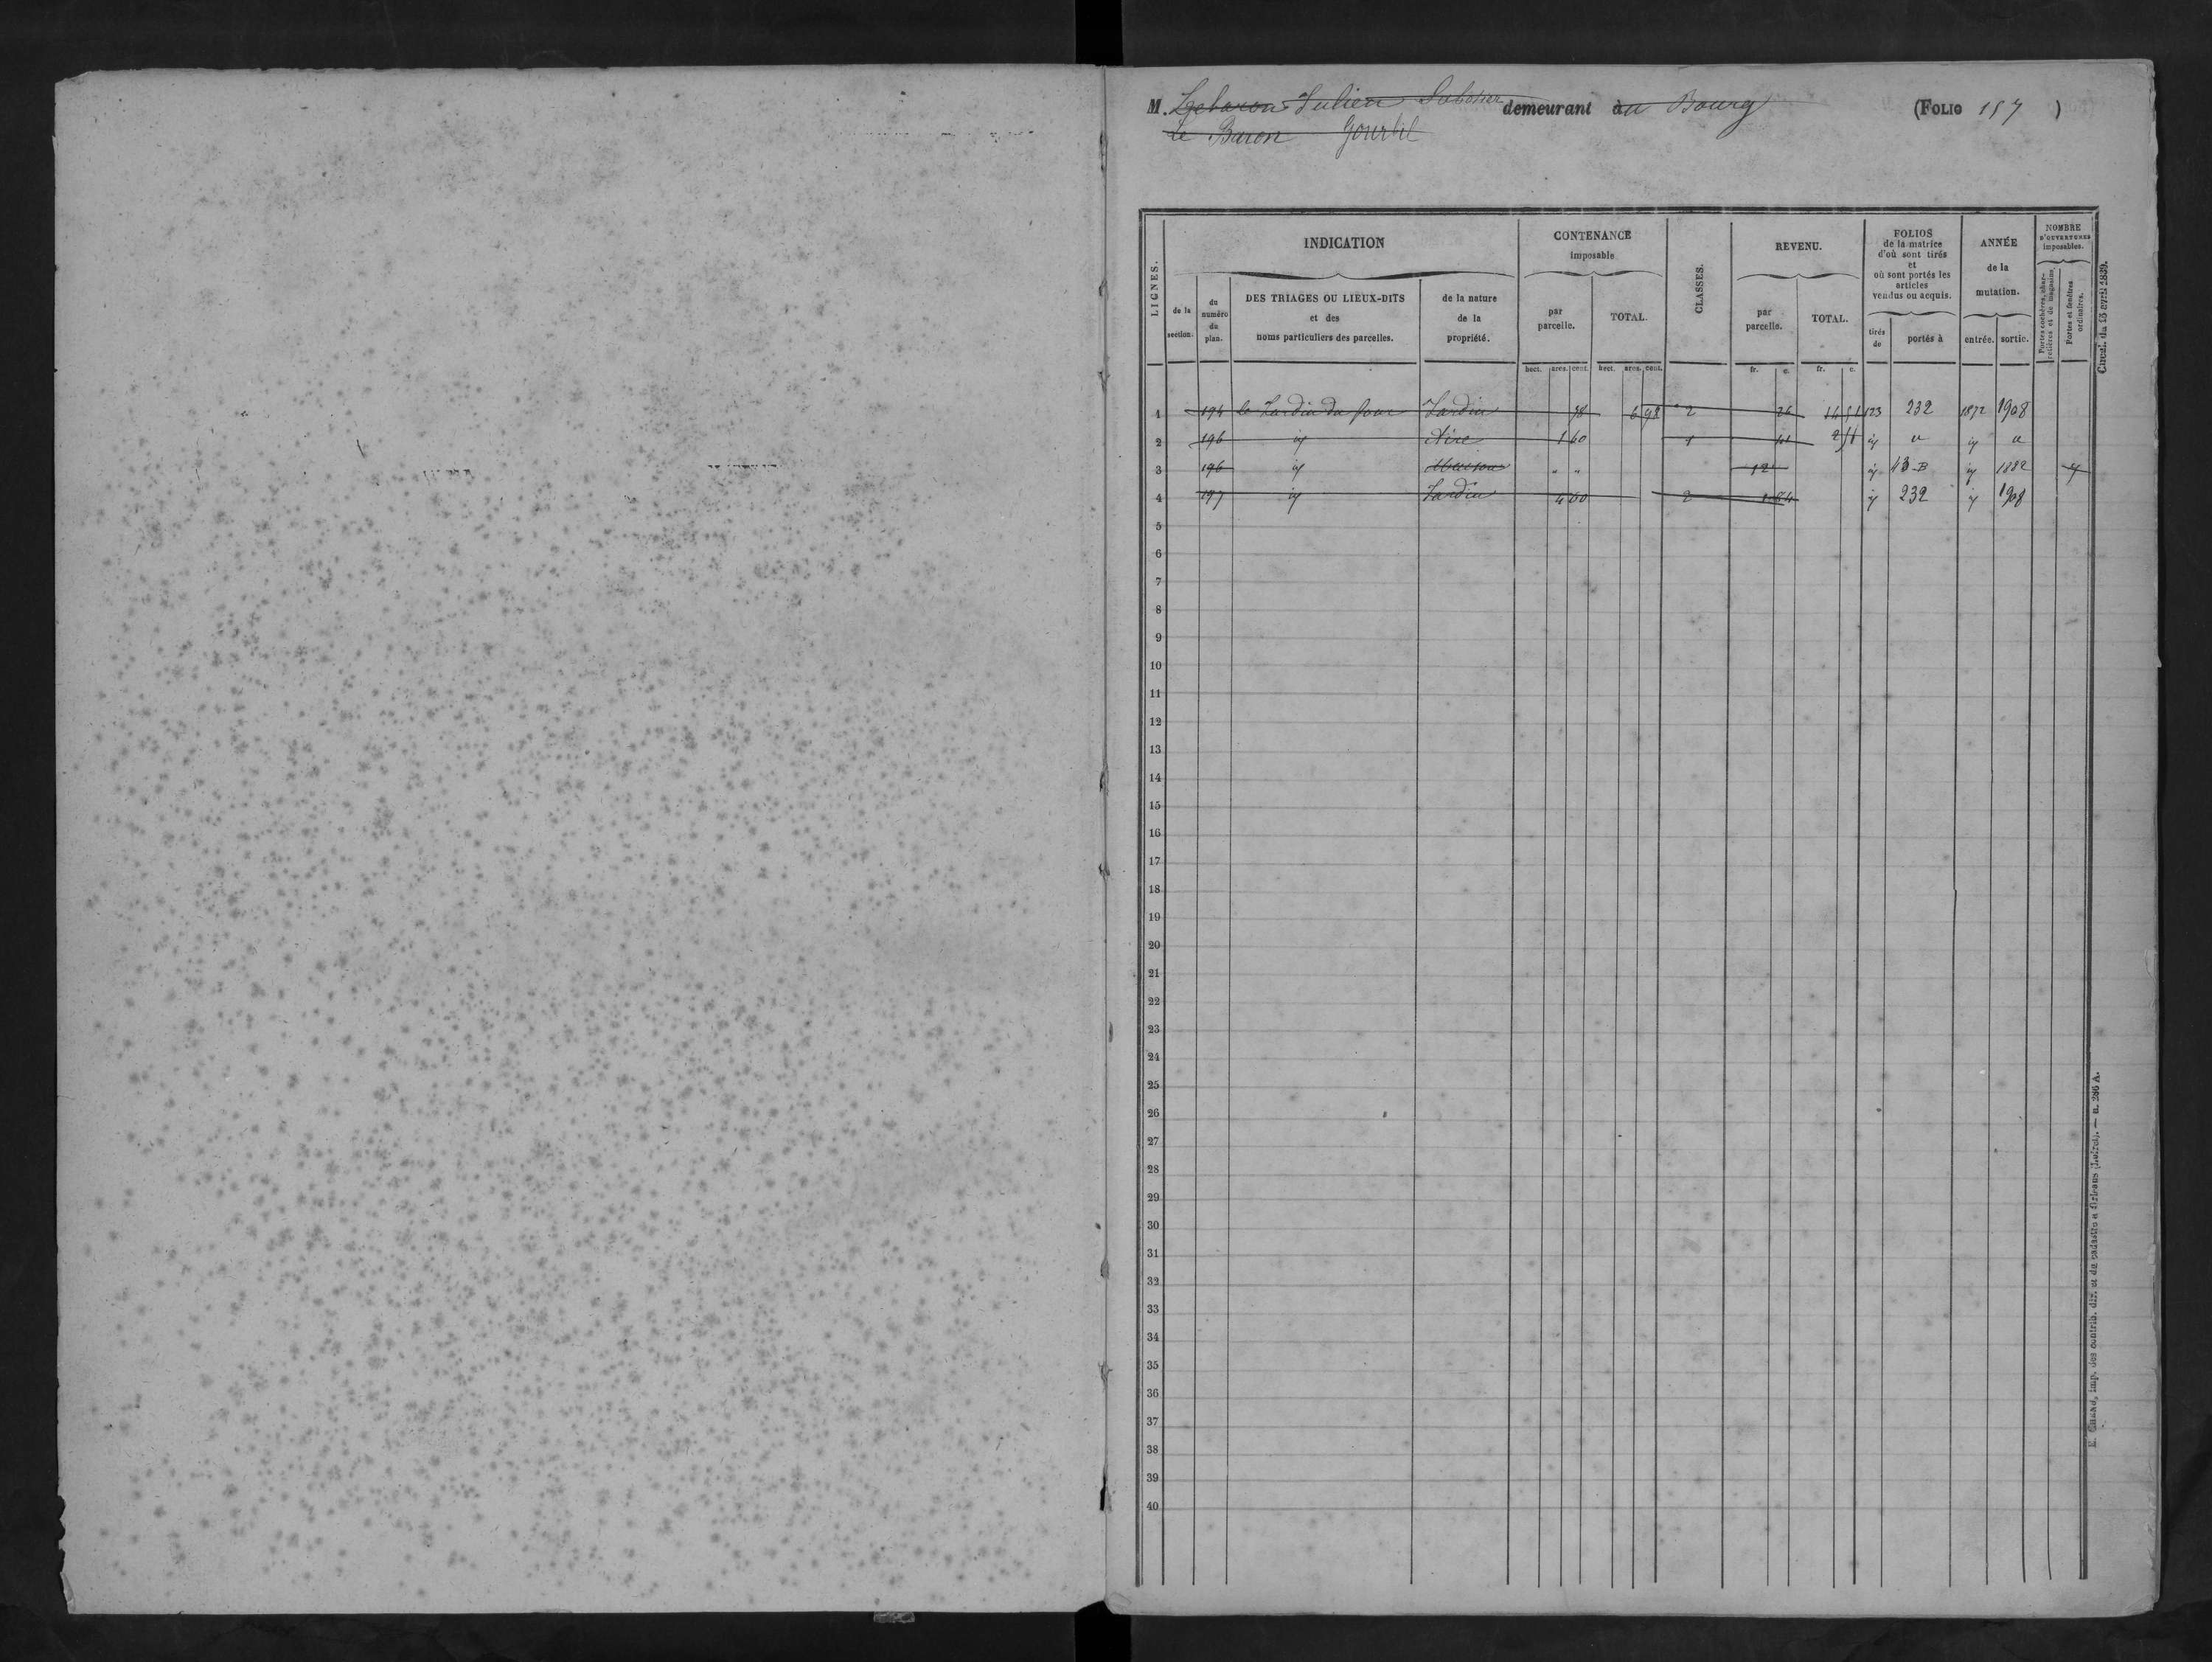 M. Lebaron Julien Sabotier demeurant au Bourg (FOLIO 157 )
Le Baron Gourbil
LIGNES. INDICATION CONTENANCE imposable CLASSES. REVENU. FOLIOS de la matrice d'où sont tirés et où sont portés les articles vendus ou acquis. ANNÉE de la mutation. NOMBRE D'OUVERTURES imposables.
de la section. du numéro du plan. DES TRIAGES OU LIEUX-DITS et des noms particuliers des parcelles. de la nature de la propriété. par parcelle. TOTAL. par parcelle. TOTAL. tirés de portés à entrée. sortie. Portes cochères, charretières et de magasins. Portes et fenêtres ordinaires.
hect. ares. cent. hect. ares. cent. fr. c. fr. c.
1 194 le Jardin du four Jardin 78 6 98 2 26 14 51 123 232 1872 1908
2 196 id Aire 1 60 1 41 2 51 id u id u
3 196 id Maison " " 12 id 43 B id 1882 4
4 197 id Jardin 4 60 2 1 84 id 232 id 1908
5
6
7
8
9
10
11
12
13
14
15
16
17
18
19
20
21
22
23
24
25
26
27
28
29
30
31
32
33
34
35
36
37
38
39
40
Circul. du 15 avril 1839.
imp. des contrib. dir. et du cadastre à Orléans (Loiret). — n. 286 A.